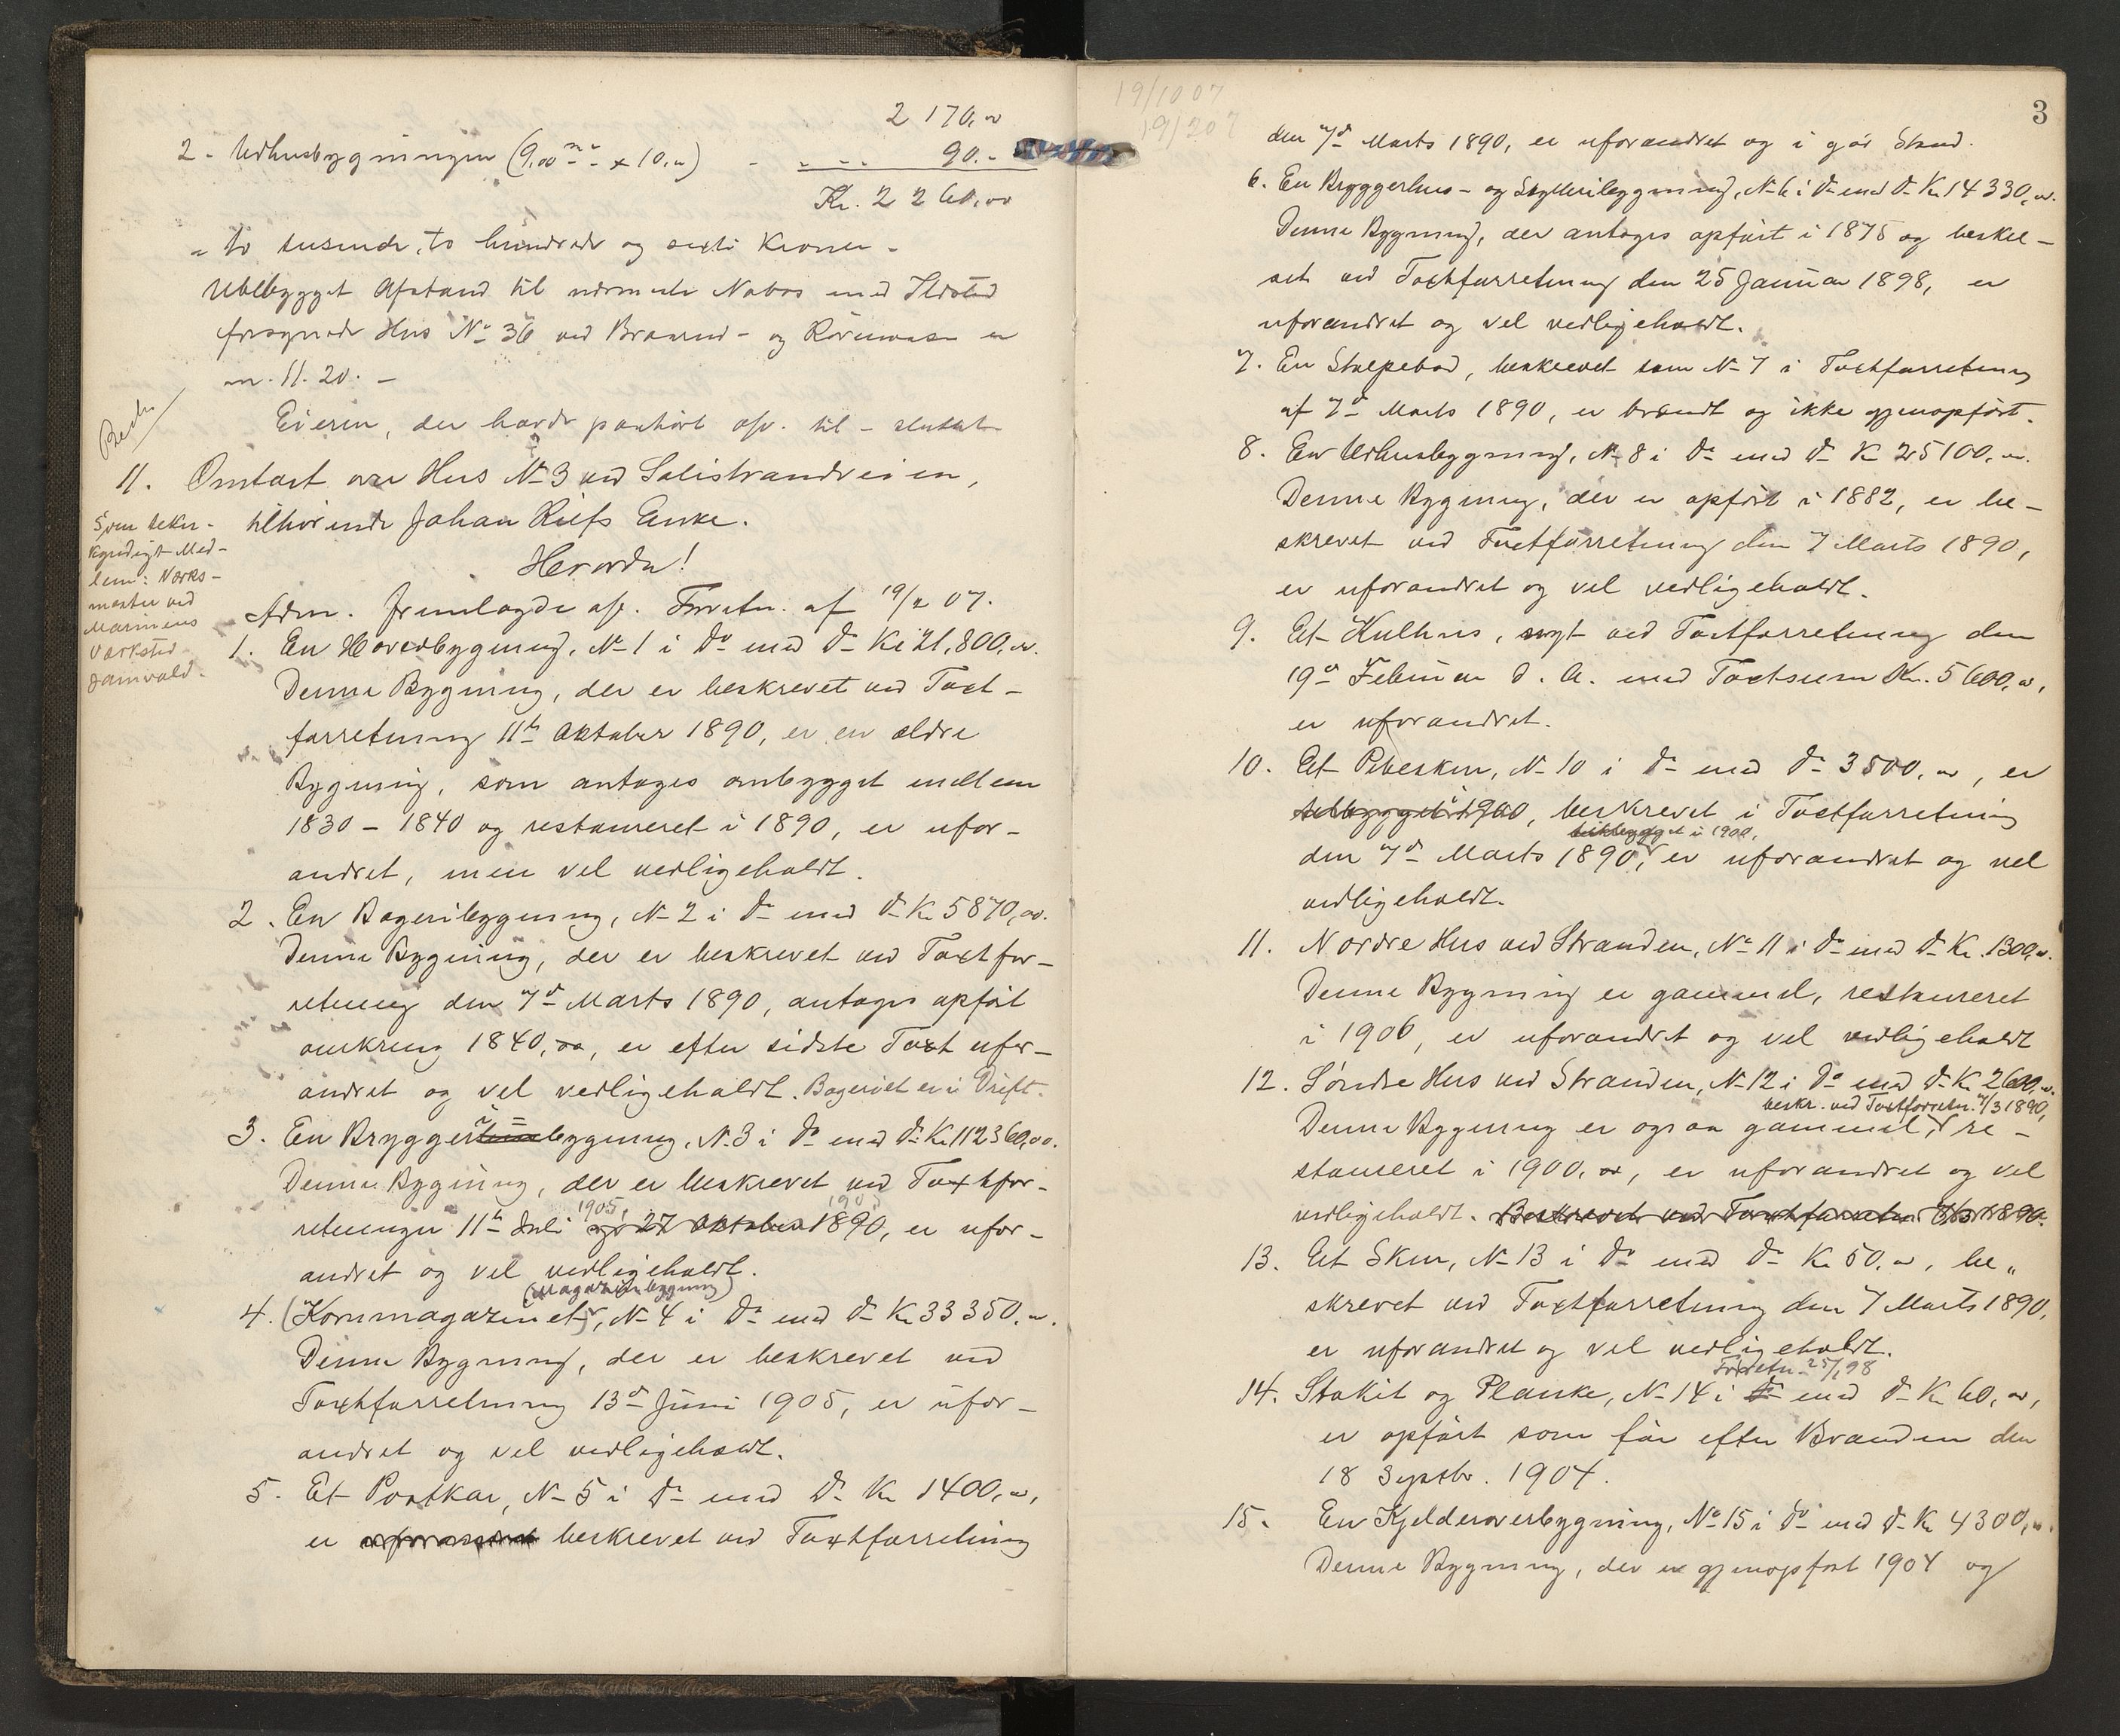 2 170,00
2. Udhusbygningen (9.00 × 10.00) - - - - 90.-
Kr. 2 260,00
- to tusende, to hundrede og sexti Kroner -
Ubebygget Afstand til nærmeste Nabos med Ildsted
forsynede Hus No 36 ved Brænd- og Rørerenna er
m. 11.20. -
Eieren, der havde paahørt op. til - sluttet
11. Omtaxt over Hus No 3 ved Solistrandveien,
tilhørende Johan Riefs Enke.
Hvorda!
Som tekn-
kyndigt Med-
lem: Værks-
mester ved
Marinens
Værksted
Jamvold.
Adm. fremlagde op. Forretn. af 19/2 07.
1. En Hovedbygning, No 1 i do med do Kr. 21,800,00.
Denne Bygning, der er beskrevet ved Taxt-
forretning 11te Oktober 1890, er en ældre
Bygning, som antages ombygget mellem
1830 - 1840 og restaureret i 1890, er ufor-
andret, men vel vedligeholdt.
2. En Bageribygning, No 2 i do med do Kr. 5870,00.
Denne Bygning, der er beskrevet ved Taxtfor-
retning den 7de Marts 1890, antages opført
omkring 1840, er efter sidste Taxt ufor-
andret og vel vedligeholdt. Bageriet er i Drift.
3. En Bryggeribygning, No 3 i do med do Kr. 112 360,00.
Denne Bygning, der er beskrevet ved Taxtfor-
1905,
retninger 11te Juli og 27 Oktober 1890, er ufor-
andret og vel vedligeholdt.
(Magazinbygning)
4. (Kornmagazinet), No 4 i do med do Kr. 33 350,00.
Denne Bygning, der er beskrevet ved
Taxtforretning 13de Juni 1905, er ufor-
andret og vel vedligeholdt.
5. Et Portkar, No 5 i do med do Kr. 1400,00,
er uforandret beskrevet ved Taxtforretning
19/10 07
19/2 07
3
den 7de Marts 1890, er uforandret og i god Stand.
6. En Bryggerhus- og Skylleribygning, No 6 i do med do Kr. 14 330,00.
Denne Bygning, der antages opført i 1875 og beskre-
vet ved Taxtforretning den 25 Januar 1898, er
uforandret og vel vedligeholdt.
7. En Stolpebod, beskrevet som No 7 i Taxtforretning
af 7de Marts 1890, er brændt og ikke gjenopført.
8. En Udhusbygning, No 8 i do med do Kr. 25100,00.
Denne Bygning, der er opført i 1882, er be-
skrevet ved Taxtforretning den 7 Marts 1890,
er uforandret og vel vedligeholdt.
9. Et Kulhus, nyt ved Taxtforretning den
19de Februar d. A. med Taxtsum Kr. 5600,00,
er uforandret.
10. Et Pibeskur, No 10 i do med do 3500,00, er
tilbygget i 1900, beskrevet i Taxtforretning
tilbygget i 1900,
den 7de Marts 1890, er uforandret og vel
vedligeholdt.
11. Nordre Hus ved Stranden, No 11 i do med do Kr. 1300,00.
Denne Bygning er gammel, restaureret
i 1906, er uforandret og vel vedligeholdt
12. Søndre Hus ved Stranden, No 12 i do med do Kr. 2600,00.
beskr. ved Taxtforretn. 7/3 1890,
Denne Bygning er ogsaa gammel, re-
staureret i 1900, er uforandret og vel
vedligeholdt. Beskrevet ved Taxtforretn 7/3 1890.
13. Et Skur, No 13 i do med do Kr. 50,00, be-
skrevet ved Taxtforretning den 7 Marts 1890,
er uforandret og vel vedligeholdt.
Forretn. 25/1 98
14. Stakit og Planke, No 14 i do med do Kr. 60,00,
er opført som før efter Branden den
18 Septbr. 1904.
15. En Kjelderoverbygning, No 15 i do med do Kr. 4300,00.
Denne Bygning, der er gjenopført 1904 og